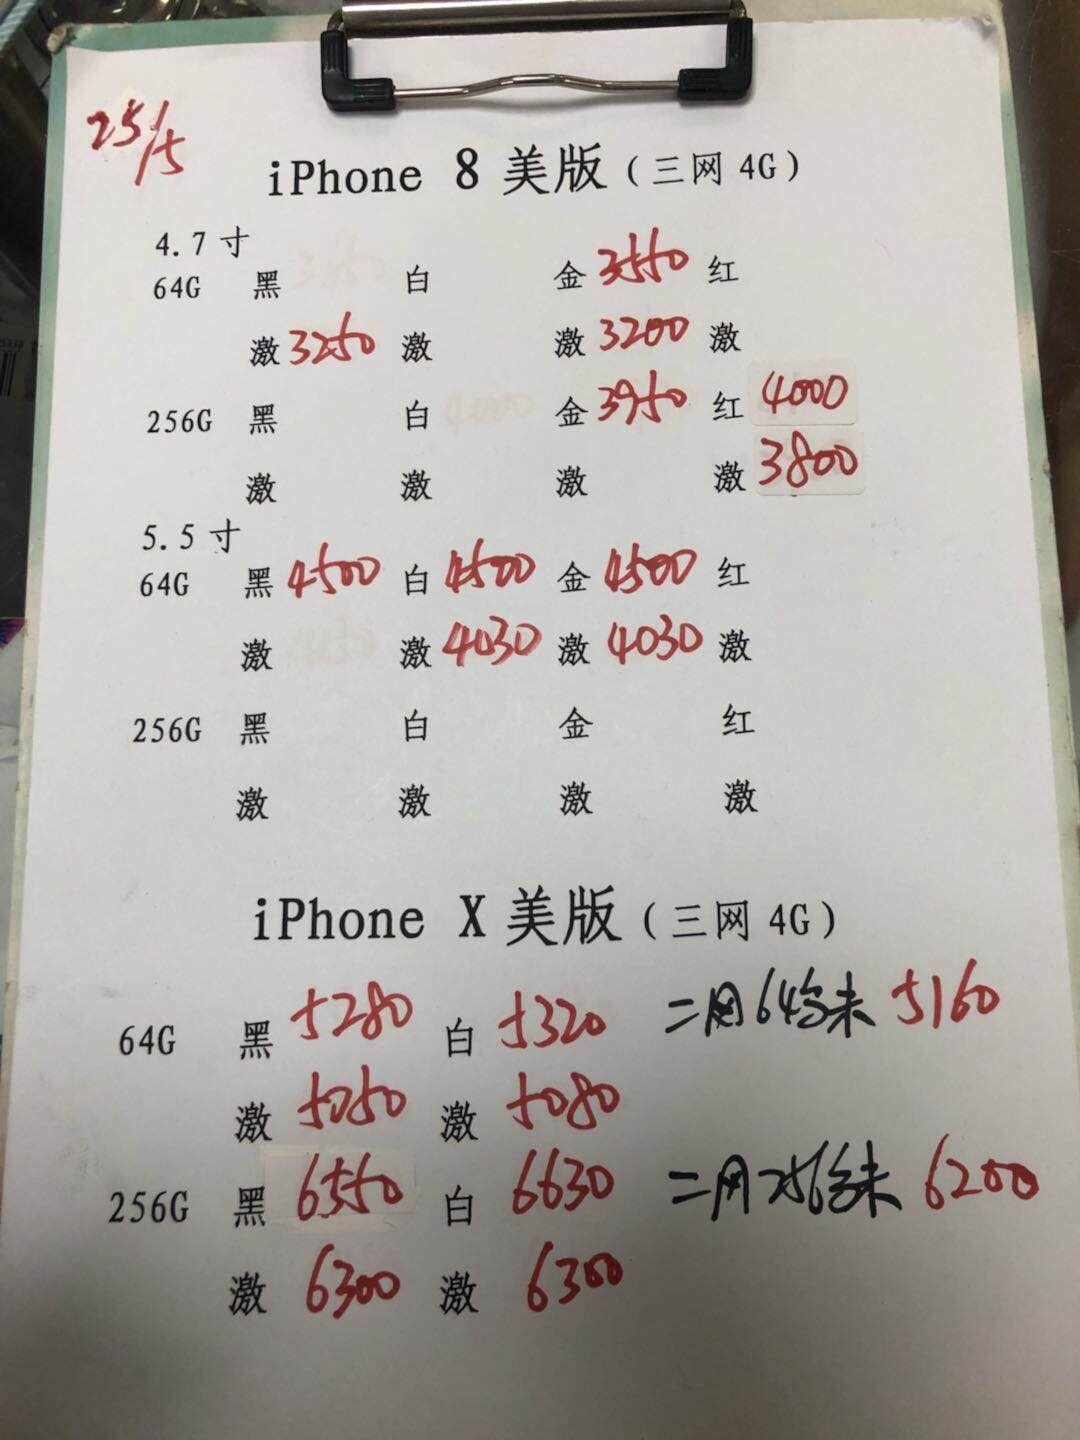 25/5
iPhone 8 美版（三网 4G）
4.7 寸
64G 黑 白 金 3550 红
激 3250 激 激 3200 激
256G 黑 白 金 3950 红 4000
激 激 激 激 3800
5.5 寸
64G 黑 4500 白 4500 金 4500 红
激 激 4030 激 4030 激
256G 黑 白 金 红
激 激 激 激
iPhone X 美版（三网 4G）
64G 黑 5280 白 5320 二网 64 未 5160
激 5050 激 5080
256G 黑 6550 白 6630 二网 256 未 6200
激 6300 激 6300